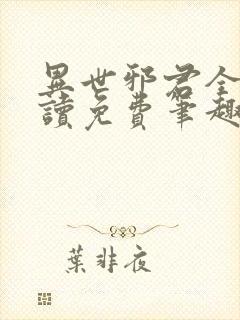 異世邪君全
讀免費筆趣
葉非夜